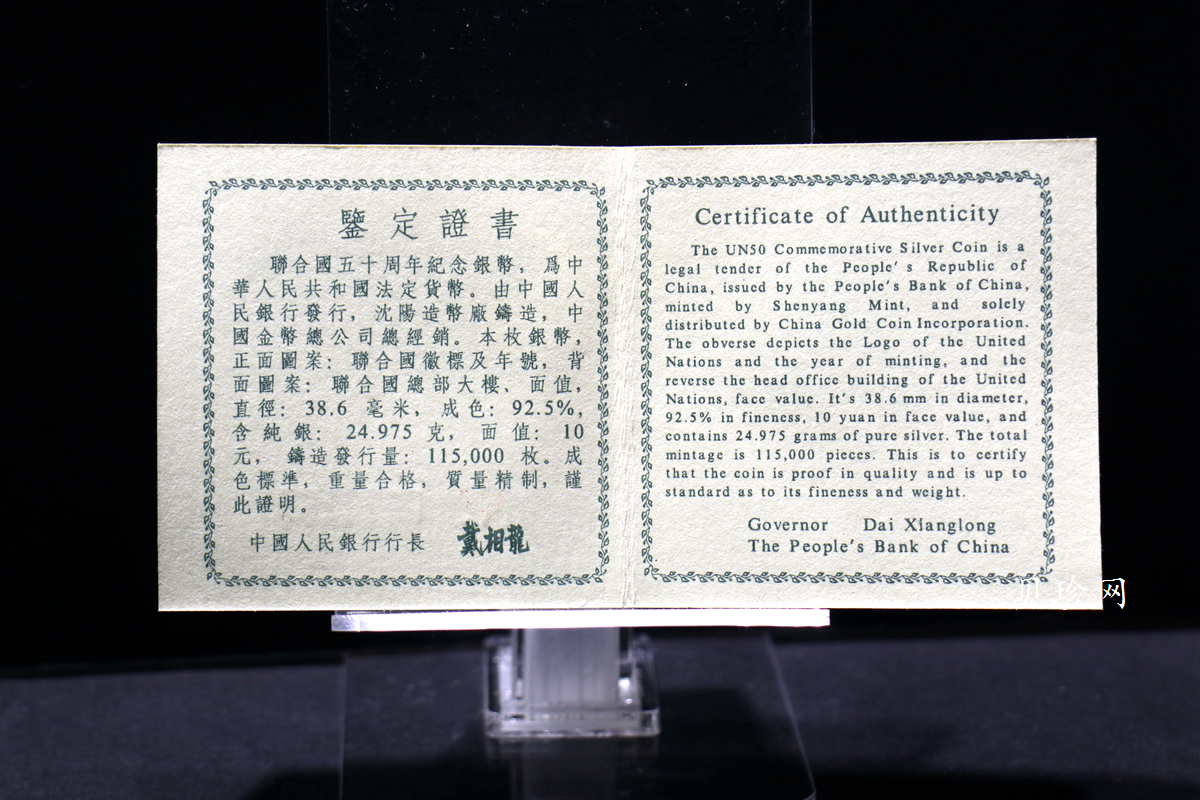 鑒定證書
聯合國五十周年紀念銀幣，爲中
華人民共和國法定貨幣。由中國人
民銀行發行，沈陽造幣廠鑄造，中
國金幣總公司總經銷。本枚銀幣，
正面圖案：聯合國徽標及年號，背
面圖案：聯合國總部大樓、面值，
直徑：38.6 毫米，成色：92.5%，
含純銀：24.975 克，面值：10
元，鑄造發行量：115,000 枚。成
色標準，重量合格，質量精制，謹
此證明。
中國人民銀行行長 戴相龍
Certificate of Authenticity
The UN50 Commemorative Silver Coin is a
legal tender of the People's Republic of
China, issued by the People's Bank of China,
minted by Shenyang Mint, and solely
distributed by China Gold Coin Incorporation.
The obverse depicts the Logo of the United
Nations and the year of minting, and the
reverse the head office building of the United
Nations, face value. It's 38.6 mm in diameter,
92.5% in fineness, 10 yuan in face value, and
contains 24.975 grams of pure silver. The total
mintage is 115,000 pieces. This is to certify
that the coin is proof in quality and is up to
standard as to its fineness and weight.
Governor Dai Xianglong
The People's Bank of China
珍网